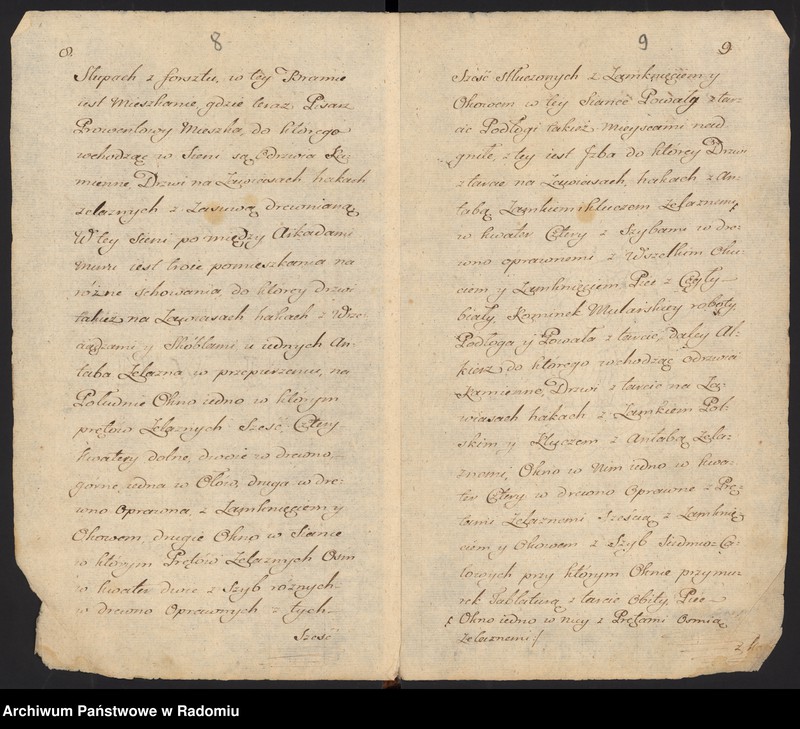 8. 8
Słupach z forsztu, w tey Bramie
iest Mieszkanie, gdzie teraz Pisarz
Prowentowy Mieszka, do którego
wchodząc w Sieni są Odrzwia Ka-
mienne, Drzwi na Zawiasach hakach
żelaznych z Zasuwą drewnianą
W tey Sieni pomiędzy Arkadami
Muru iest troie pomieszkania na
różne schowania, do których drzwi
takież na Zawiasach hakach z Wrze-
ciądzami y Skóblami u iednych An-
taba Żelazna, w przepurzeniu, na
Południe Okno iedno w którym
prętów Żelaznych Sześć, Cztery
kwatery dolne, dwoie w drewno
gorne, iedna w Ołow, druga w dre-
wno Oprawna, z Zamknięciem y
Okowem, drugie Okno w Sianie
w którym Prętów Żelaznych Osm
w kwater dwie z Szyb różnych
w drewno Oprawnych z tych
Szesc
9 9
Sześć stłuczonych z Zamknięciem y
Okowem w tey Siance Powałą z tar-
cic Podłogi takież mieyscami nad
gniłe, z tey iest Jzba do którey Drzwi
z tarcic na Zawiasach, hakach z An-
tabą Zamkiem i kluczem żelaznemi
w kwater Cztery z Szybami w dre-
wno oprawnemi z Wszelkim Oku-
ciem y Zamknięciem, Piec z Cegły
białey, Kominek Mularskiey roboty,
Podłoga y Powała z tarcic, daley Al-
kierz do którego wchodząc odrzwia
Kamienne, Drzwi z tarcic na Za-
wiasach hakach z Zamkiem Pol-
skim y Kluczem z Antabą Żela-
znemi, Okno w Nim iedno w kwa-
ter Cztery w drewno Oprawne z Prę-
tami Żelaznemi Sześcią z Zamknię-
ciem y Okowem z Szyb Siedmio Ca-
lowych przy którym Oknie przymu-
rek Tablaturą z tarcic Obity, Piec
Okno iedno w niey z Prętami Osmią
Żelaznemi /
Archiwum Państwowe w Radomiu